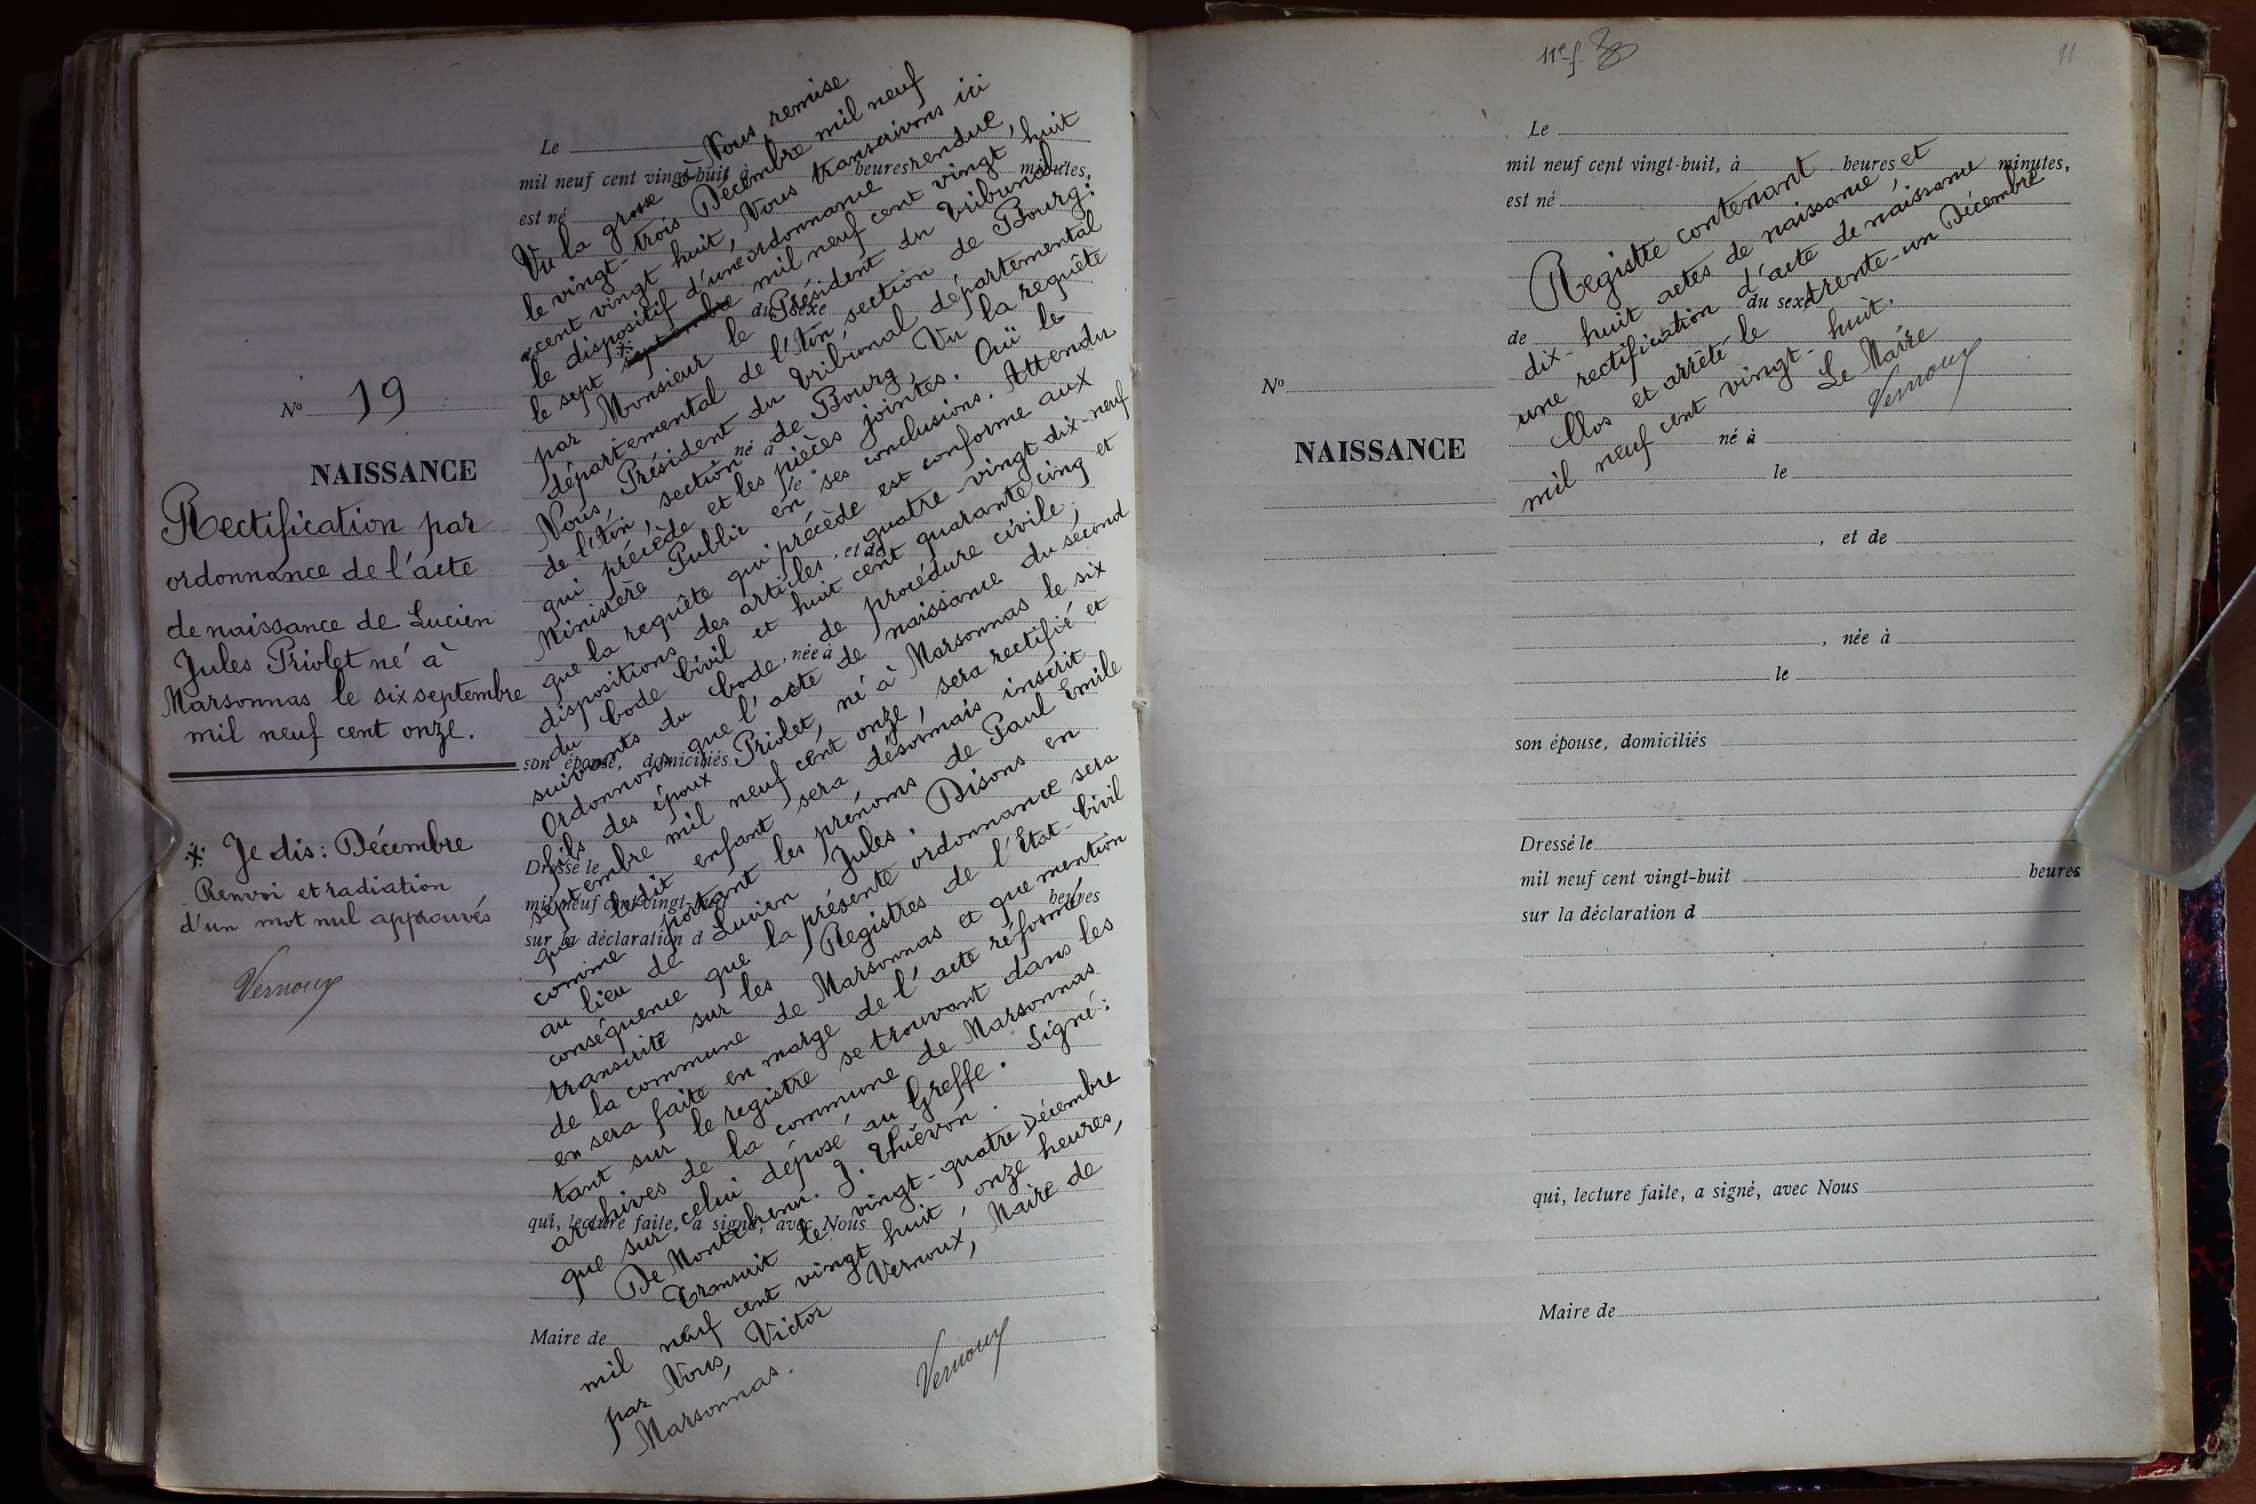 N° 19
NAISSANCE
Rectification par
ordonnance de l'acte
de naissance de Lucien
Jules Priolet né à
Marsonnas le six septembre
mil neuf cent onze.
※ Je dis : Décembre
Renvoi et radiation
d'un mot nul approuvés
Vernoux
Le
mil neuf cent vingt-huit, à heures minutes,
est né
du sexe
né à
le
, et de
, née à
son épouse, domiciliés
Dressé le
mil neuf cent vingt-huit heures
sur la déclaration d
qui, lecture faite, a signé, avec Nous
Maire de
Vu la grosse à Nous remise
le vingt-trois Décembre mil neuf
cent vingt huit, Nous transcrivons ici
le dispositif d'une ordonnance rendue,
le sept ※ septembre mil neuf cent vingt huit
par Monsieur le Président du Tribunal
départemental de l'Ain, section de Bourg :
Nous, Président du Tribunal départemental
de l'Ain, section de Bourg, Vu la requête
qui précède et les pièces jointes. Ouï le
Ministère Public en ses conclusions. Attendu
que la requête qui précède est conforme aux
dispositions des articles quatre-vingt-dix-neuf
du Code Civil et huit cent quarante cinq et
suivants du Code de procédure civile ;
Ordonnons que l'acte de naissance du second
fils des époux Priolet, né à Marsonnas le six
septembre mil neuf cent onze, sera rectifié et
que ledit enfant sera désormais inscrit
comme portant les prénoms de Paul Emile
au lieu de Lucien Jules. Disons en
conséquence que la présente ordonnance sera
transcrite sur les Registres de l'Etat-Civil
de la commune de Marsonnas et que mention
en sera faite en marge de l'acte réformé,
tant sur le registre se trouvant dans les
archives de la commune de Marsonnas
que sur celui déposé au Greffe. Signé :
De Montchenu. J. Thiévon.
Transcrit le vingt-quatre Décembre
mil neuf cent vingt huit, onze heures,
par Nous, Victor Vernoux, Maire de
Marsonnas.
Vernoux
11e f.
11
N°
NAISSANCE
Le
mil neuf cent vingt-huit, à heures minutes,
est né
de
du sexe
né à
le
, et de
, née à
le
son épouse, domiciliés
Dressé le
mil neuf cent vingt-huit heures
sur la déclaration d
qui, lecture faite, a signé, avec Nous
Maire de
Registre contenant
dix-huit actes de naissance, et
une rectification d'acte de naissance
Clos et arrêté le trente-un Décembre
mil neuf cent vingt-huit.
Le Maire
Vernoux